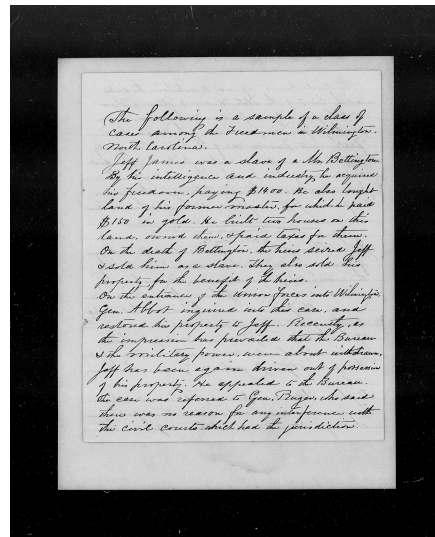 The following is a sample of a class of
cases among the Freedmen in Wilmington.
North Carolina.
Jeff James was a slave of a Mr. Bettington.
By his intelligence and industry, he acquired
his freedom, paying $1400. He also bought
land of his former master, for which he paid
$150 in gold. He built two houses on this
land, owned them, & paid taxes for them.
On the death of Bettington, the heirs seized Jeff
& sold him as a slave. They also sold his
property for the benefit of the heirs.
On the entrance of the Union forces into Wilmington
Gen. Abbot inquired into this case, and
restored his property to Jeff. Recently, as
the impression has prevailed that the Bureau
& the military power, were about withdrawn,
Jeff has been again driven out of possession
of his property. He appealed to the Bureau.
the case was referred to Gen. Ruger, who said
there was no reason for any interference with
the civil courts, which had the jurisdiction.